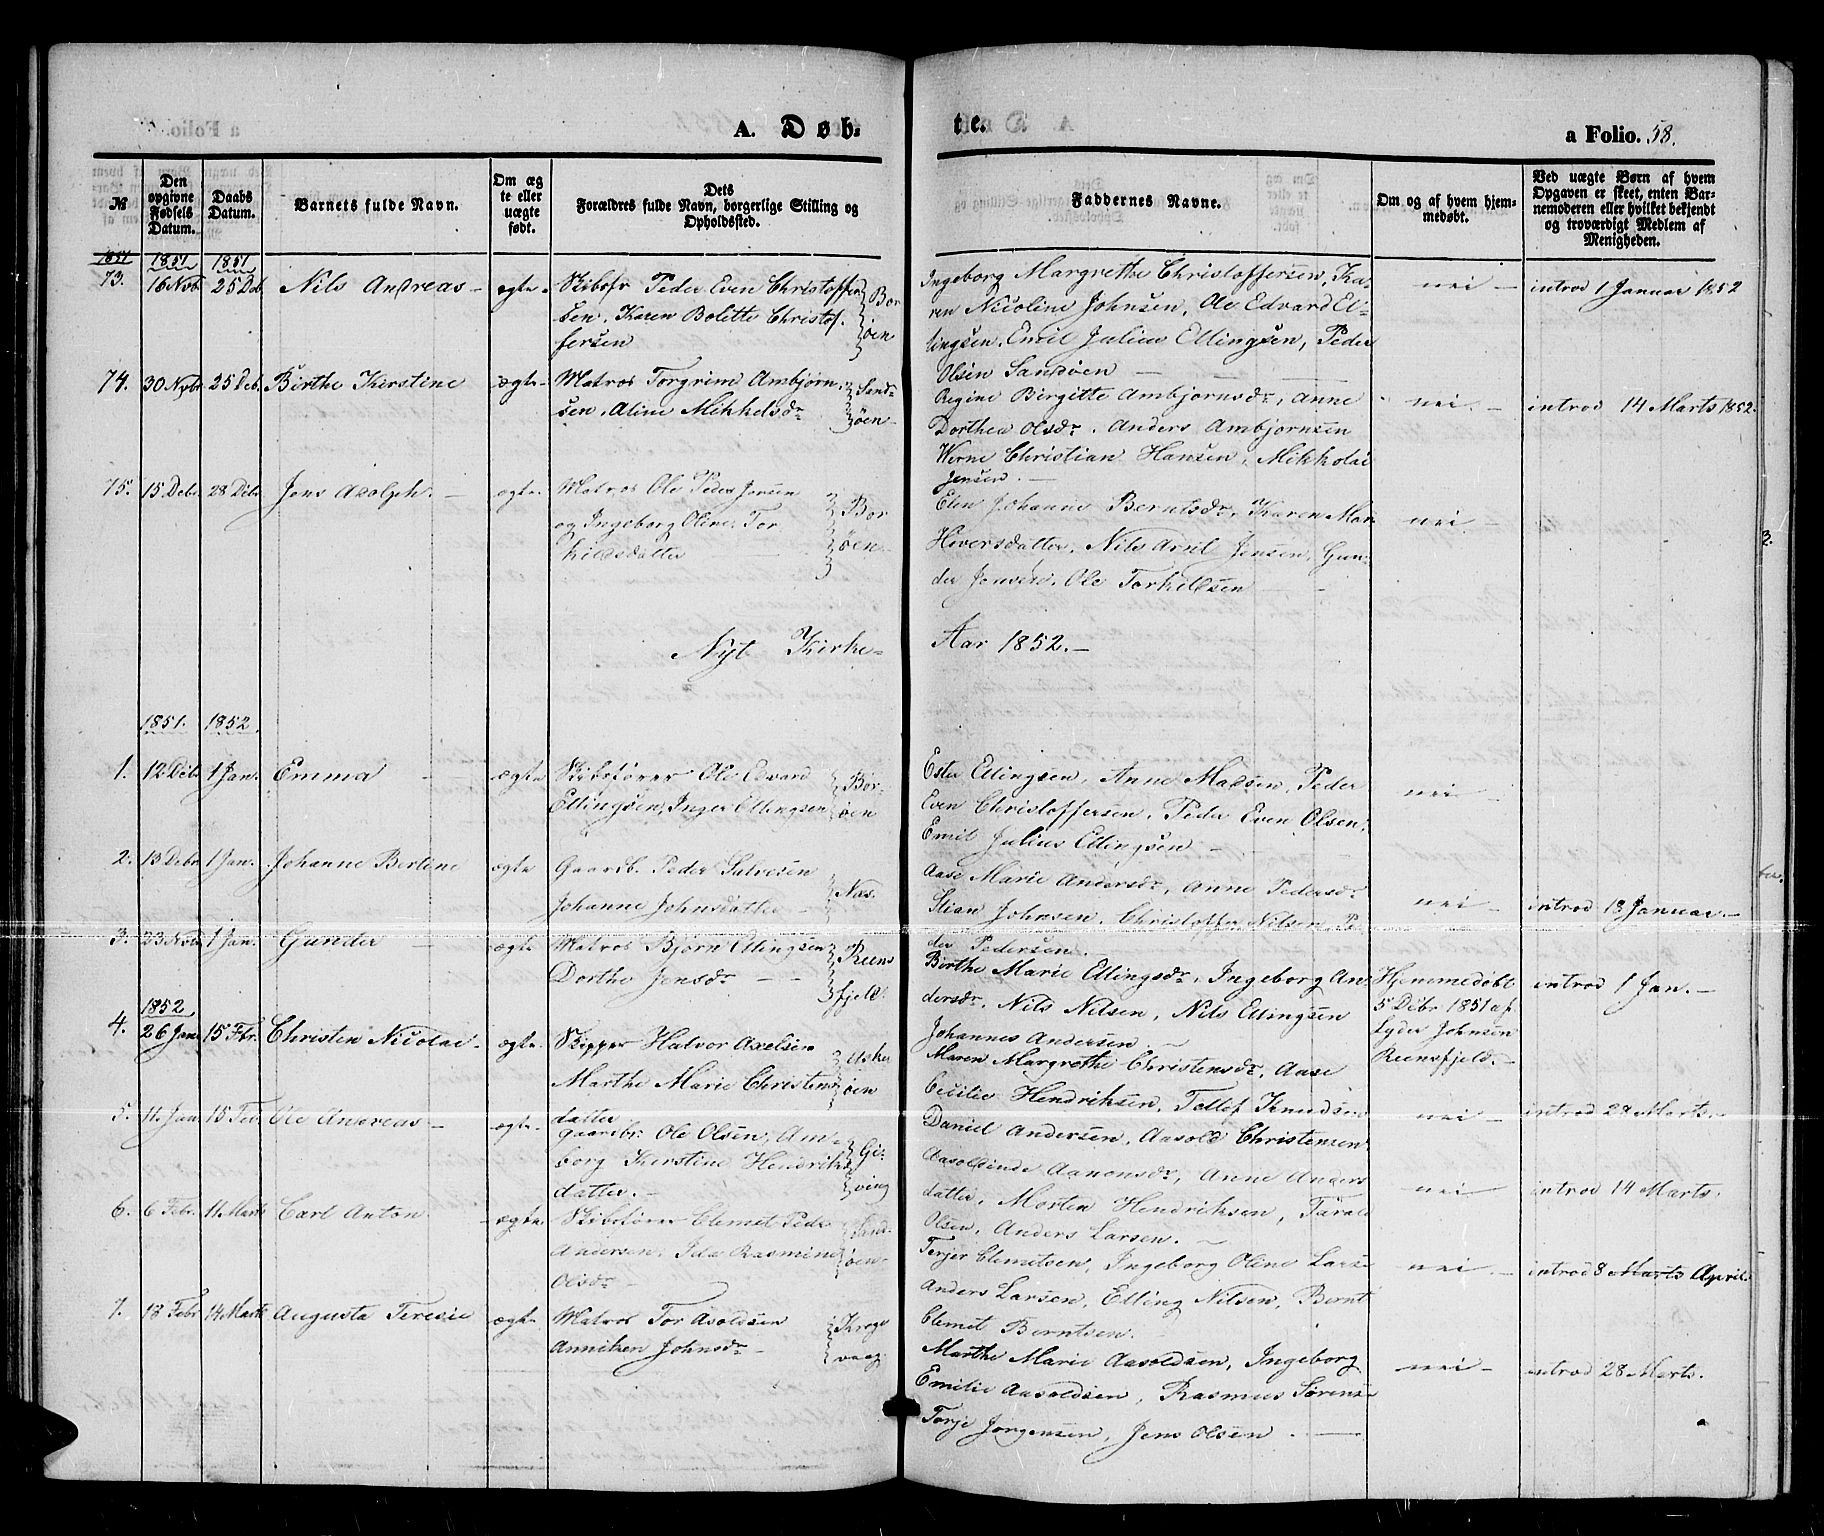 A. Døb-
te.
a Folio. 58.
№
Den opgivne Fødsels Datum.
Daabs Datum.
Barnets fulde Navn.
Om ægte eller uægte født.
Dets Forældres fulde Navn, borgerlige Stilling og Opholdssted.
Faddernes Navne.
Om og af hvem hjemmedøbt.
Ved uægte Børn af hvem Opgaven er skeet, enten Barnemoderen eller hvilket bekjendt og troværdigt Medlem af Menigheden.
1851 1851 1851
73. 16 Nvbr 25 Deb. Nils Andreas - ægte - Skibsfr Peder Even Christoffer
sen, Karen Bolette Christof.
fersen
Bor
øen
Ingeborg Margrethe Christoffersen, Ka-
ren Nicoline Johnsen, Ole Edvard El-
lingsen, Emil Julius Ellingsen, Peder
Olsen Sandøen
nei - introd 1 Januar 1852
74. 30 Nvbr 25 Deb. Birthe Kirstine ægte - Matros Torgrim Ambjørn
sen, Aline Mikkelsdr
Sand-
øen
Regine Birgitte Ambjørnsdr, Anne
Dorthea Olsdr, Anders Ambjørnsen
Werne Christian Hansen, Mikkolai
Jensen -
nei. - introd 14 Marts 1852.
75. 15 Debr 28 Debr Jens Adolph. - ægte. Matros Ole Peder Jensen
og Ingeborg Oline Tor
kildsdatter
Bor
øen
Elen Johanne Berntsdr, Karen Mar.
Hiversdatter, Nils Arnt Jensen, Gun-
der Jensen, Ole Torkildsen
nei -
Nyt Kirke-
Aar 1852. -
1851. 1852.
1. 12 Debr 1 Jan. Emma - ægte Skibsfører Ole Edvard
Ellingsen, Inger Ellingsen
Bor-
øen
Ester Ellingsen, Anne Madsen, Peder
Even Christoffersen, Peder Even Olsen,
Emil Julius Ellingsen -
nei -
2. 13 Debr 1 Jan. Johanne Bertine ægte Gaardb. Peder Salvesen
Johanne Johnsdatter -
Næs.
Aase Marie Andersdr, Anne Pedersdr
Stian Johnsen, Christoffer Nilsen, Pe-
der Pedersen.
nei - introd 18 Januar. -
3. 23 Nvbr 1 Jan. Gunder - ægte Matros Bjørn Ellingsen
Dorthe Jensdr -
Reens
fjeld.
Birthe Marie Ellingsdr, Ingeborg An-
dersdr, Nils Nilsen, Nils Ellingsen
Johannes Andersen -
Hjemmedøbt
5 Debr 1851 af
Lyder Johnsen
Reensfjeld. -
introd 1 Jan. -
1852
4. 26 Jan 15 Fbr. Christen Nicolai - ægte. Skipper Halvor Axelsen
Marthe Marie Christens
datter
Asker
øen
Maren Margrethe Christensdr, Aase
Cecilie Hendriksen, Tellef Knudsen
Daniel Andersen, Aasold Christensen
nei - introd 29 Marts. -
5. 11 Jan 15 Feb. Ole Andreas - ægte. Gaardbr. Ole Olsen, Am-
borg Kirstine Hendriks
datter. -
Gi-
ving
Aasoldinde Aanonsdr, Anne Anders
datter, Morten Hendriksen, Tarald
Olsen, Anders Larsen. -
nei - introd 14 Marts.
6. 6 Febr. 11 Marts Carl Anton. - ægte. Skibsfører Clemet Peder
Andersen, Ida Rasmine
Olsdr -
Sand-
øen
Terjer Clemetsen, Ingeborg Oline Larse
Anders Larsen, Elling Nilsen, Bernt
Clemet Berntsen.
nei. - introd 8 Marts April
7. 18 Febr 14 Marts Augusta Teresie ægte. Matros Tor Asoldsen
Anniken Johnsdr -
Krogs
vaag.
Marthe Marie Aasoldsen, Ingeborg
Emilie Aasoldsen, Rasmus Sørense
Torje Jørgensen, Jens Olsen. -
nei - introd 28 Marts.